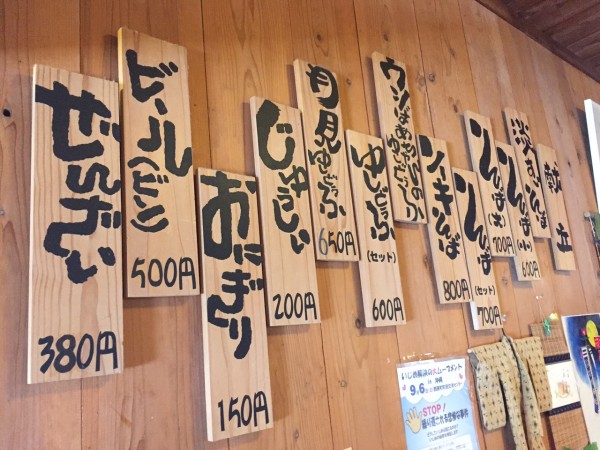 献立
そば(小)
600円
そば(大)
700円
そば(セット)
700円
ソーキそば
800円
ゆしどうふ
(セット)
600円
月見ゆしどうふ
650円
じゅうしい
200円
おにぎり
150円
ビール(ビン)
500円
ぜんざい
380円
in 沖縄
9月6日
STOP!
繰り返される悲惨な事件